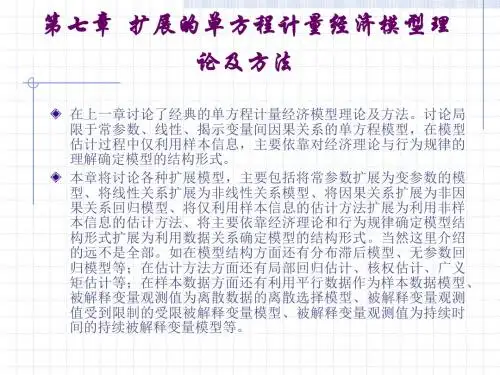 第七章 扩展的单方程计量经济模型理
论及方法
在上一章讨论了经典的单方程计量经济模型理论及方法。讨论局
限于常参数、线性、揭示变量间因果关系的单方程模型，在模型
估计过程中仅利用样本信息，主要依靠对经济理论与行为规律的
理解确定模型的结构形式。
本章将讨论各种扩展模型，主要包括将常参数扩展为变参数的模
型、将线性关系扩展为非线性关系模型、将因果关系扩展为非因
果关系回归模型、将仅利用样本信息的估计方法扩展为利用非样
本信息的估计方法、将主要依靠经济理论和行为规律确定模型结
构形式扩展为利用数据关系确定模型的结构形式。当然这里介绍
的远不是全部。如在模型结构方面还有分布滞后模型、无参数回
归模型等；在估计方法方面还有局部回归估计、核权估计、广义
矩估计等；在样本数据方面还有利用平行数据作为样本数据模型、
被解释变量观测值为离散数据的离散选择模型、被解释变量观测
值受到限制的受限被解释变量模型、被解释变量观测值为持续时
间的持续被解释变量模型等。